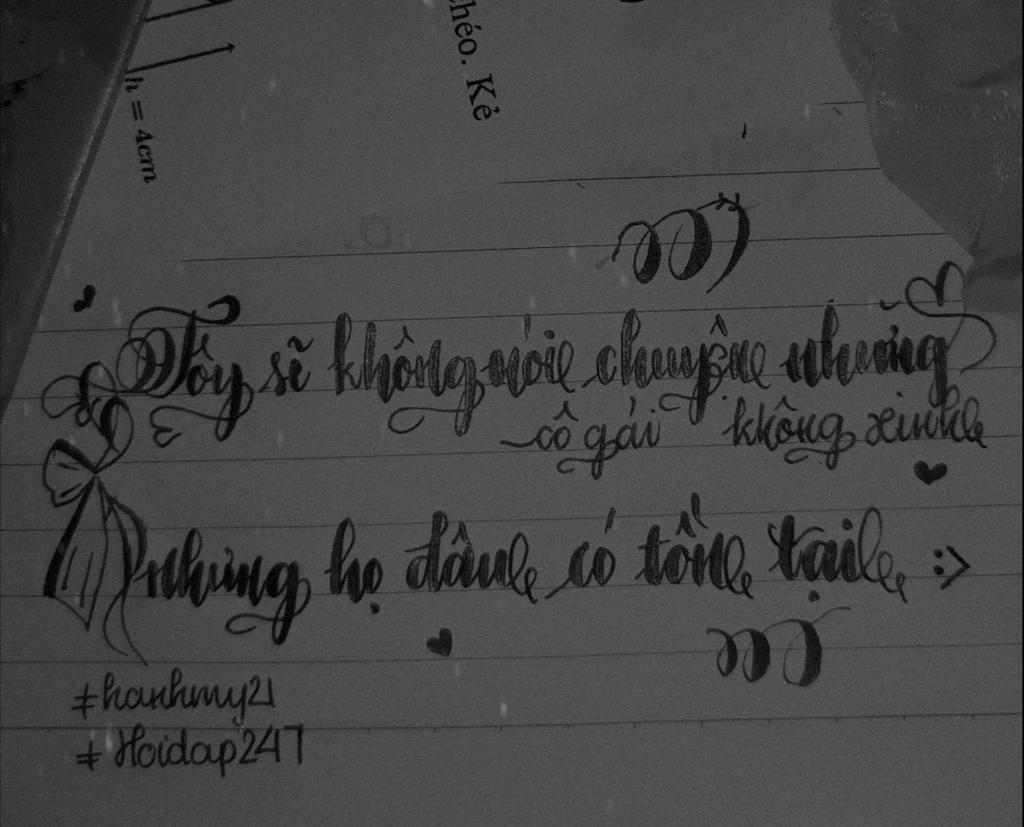 chéo. Kẻ
h = 4cm
Tôy sẽ không nói chuyện những
cô gái không xinh
nhưng họ đâu có tồn tại :>
#hanhmy21
#Hoidap247